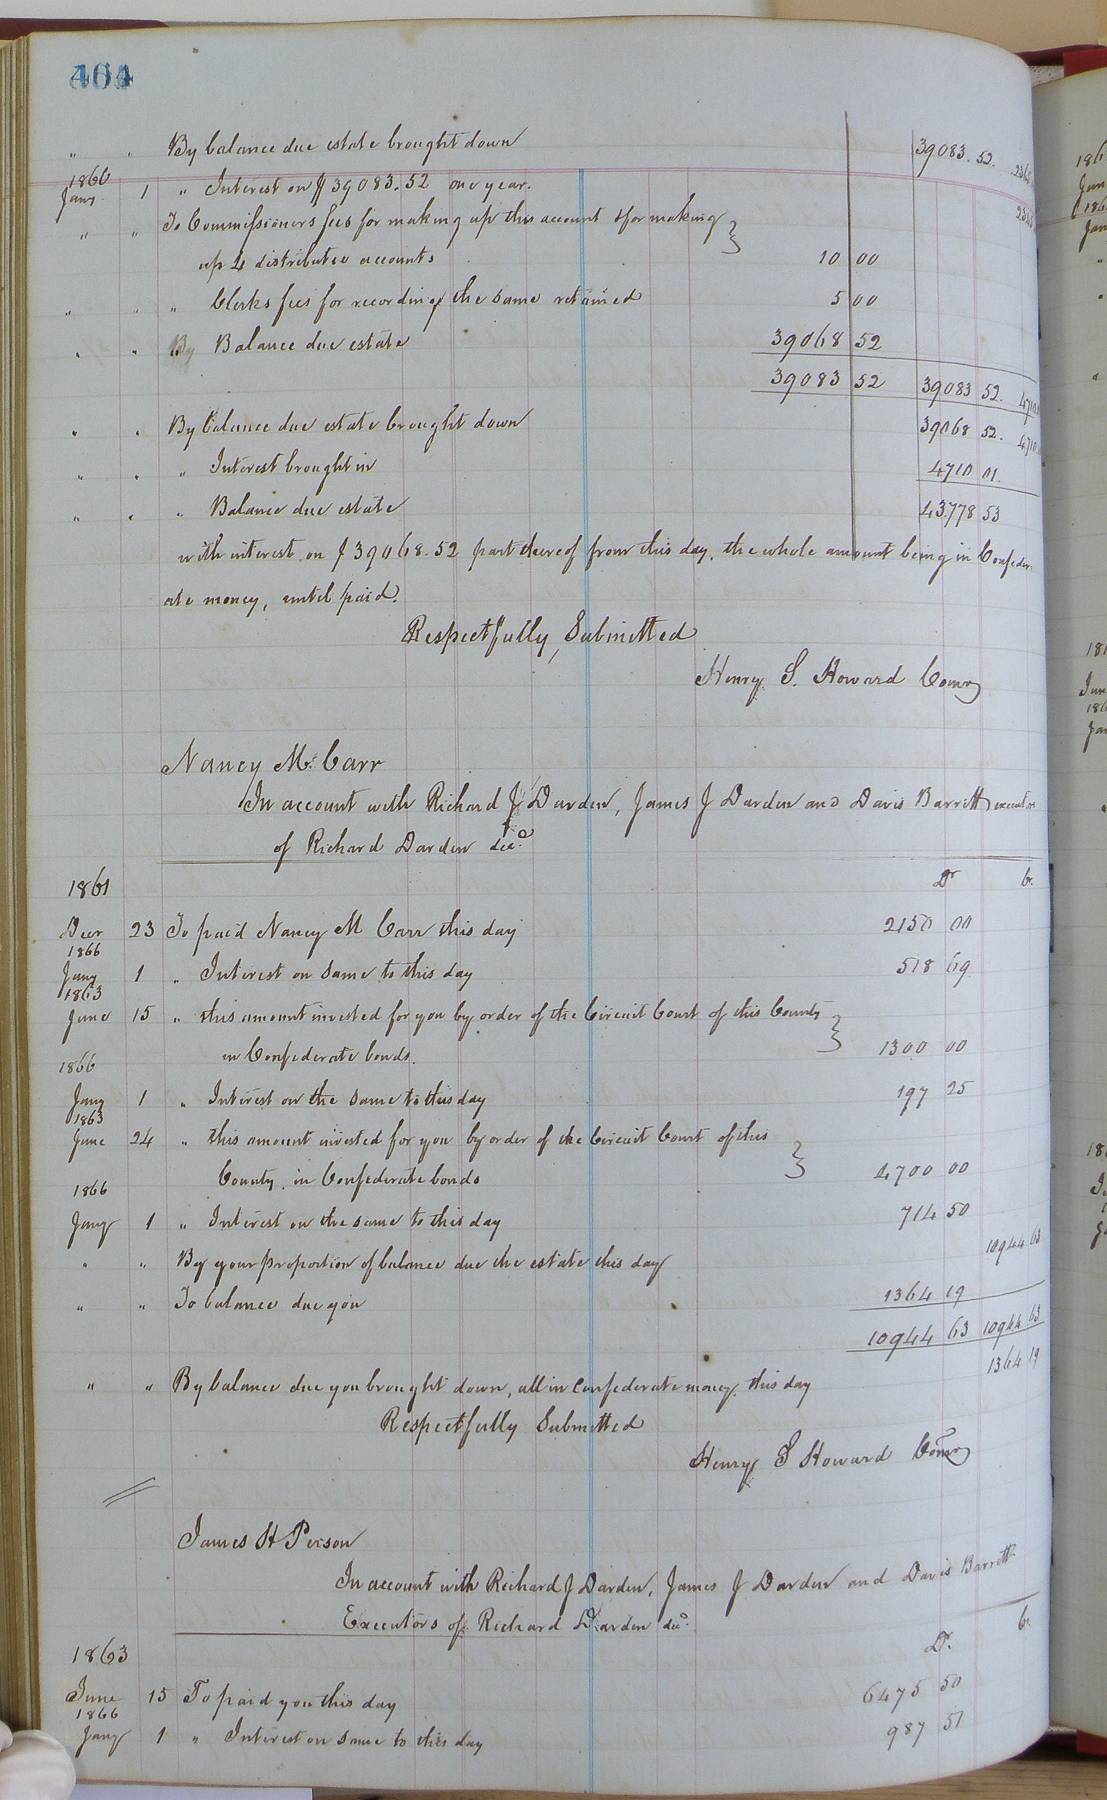 464
" " By balance due estate brought down 39083.52.
1866
Jany 1 " Interest on $39083.52 one year.
" " To Commissioners fees for making up this account & for making
up 4 distributee accounts 10 00
" " " Clerks fees for recording the same retained 5 00
" " By Balance due estate 39068 52
39083 52 39083 52.
" " By balance due estate brought down 39068 52.
" " " Interest brought in 4710 01.
" " " Balance due estate 43778 53
with interest on $39068.52 part thereof from this day, the whole amount being in Confeder-
ate money, until paid.
Respectfully, Submitted
Henry S. Howard Comr
Nancy M. Carr
In account with Richard J Darden, James J Darden and Davis Barrett executors
of Richard Darden decd
1861 Dr Cr.
Decr 23 To paid Nancy M Carr this day 2150 00
1866
Jany 1 " Interest on same to this day 518 69
1863
June 15 " this amount invested for you by order of the Circuit Court of this County
in Confederate bonds. 1300 00
1866
Jany 1 " Interest on the same to this day 197 25
1863
June 24 " this amount invested for you by order of the Circuit Court of this
County, in Confederate bonds 4700 00
1866
Jany 1 " Interest on the same to this day 714 50
" " By your proportion of balance due the estate this day 10944 63
" " To balance due you 1364 19
10944 63 10944 63
1364 19
" " By balance due you brought down, all in Confederate money, this day
Respectfully Submitted
Henry S Howard Comr
James H Person
In account with Richard J Darden, James J Darden and Davis Barrett
Executors of Richard Darden decd
1863 Dr. Cr.
June 15 To paid you this day 6475 50
1866
Jany 1 " Interest on same to this day 987 51